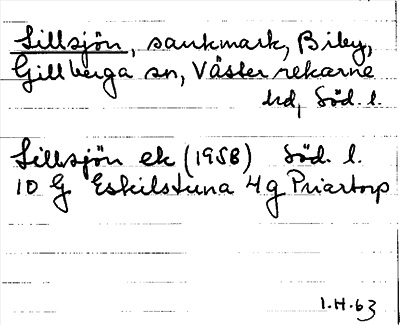 Lillsjön, sankmark, Biby,
Gillberga sn, Väster rekarne
hd, Söd. l.
Lillsjön ek (1958) Söd. l.
10 G Eskilstuna 4 g Priartorp
1.H.63